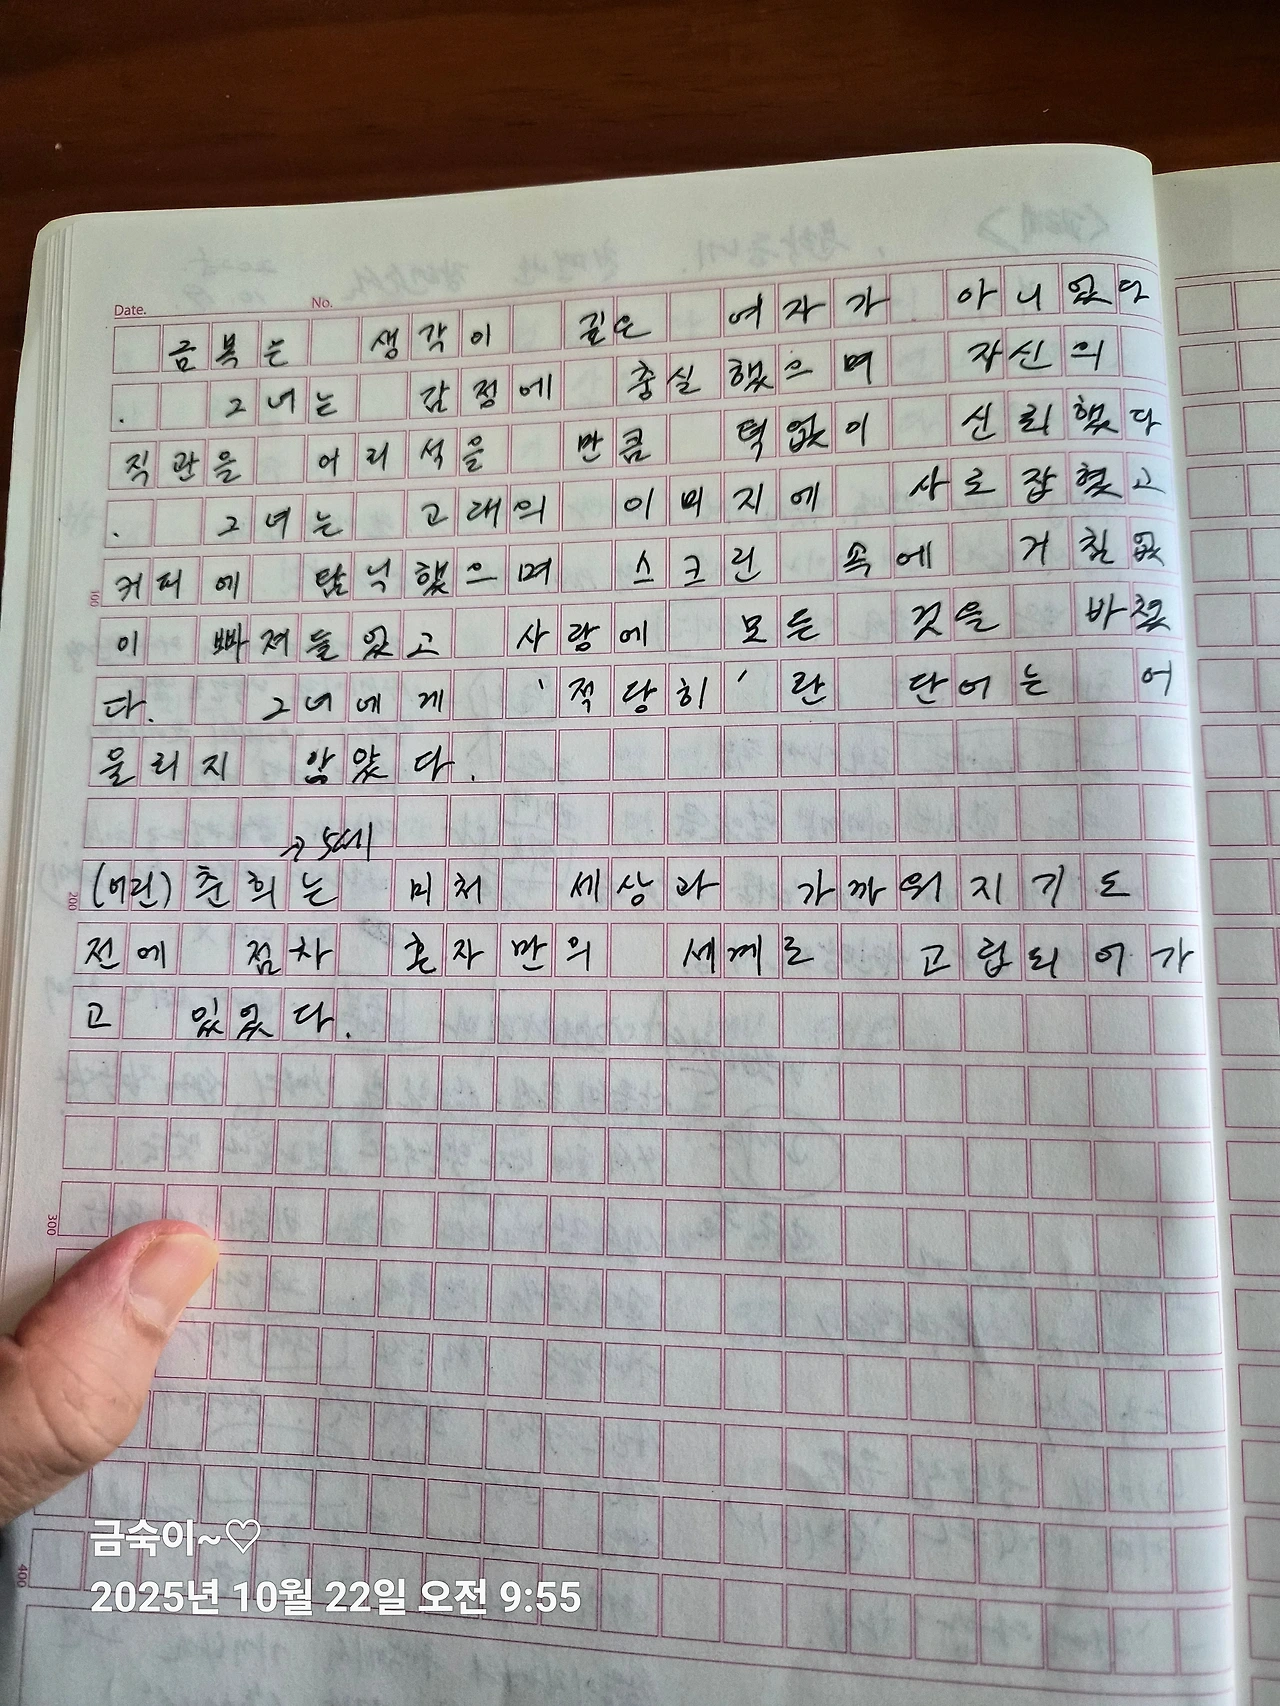 Date. No.
금복은 생각이 깊은 여자가 아니었다
. 그녀는 감정에 충실했으며 자신의
직관을 어리석을 만큼 턱없이 신뢰했다
. 그녀는 고래의 이미지에 사로잡혔고
커피에 탐닉했으며 스크린 속에 거침없
100
이 빠져들었고 사랑에 모든 것을 바쳤
다. 그녀에게 '적당히'란 단어는 어
울리지 않았다.
→ 5세
(어린) 춘희는 미처 세상과 가까워지기도
200
전에 점차 혼자만의 세계로 고립되어가
고 있었다.
300
400
금숙이~♡
2025년 10월 22일 오전 9:55